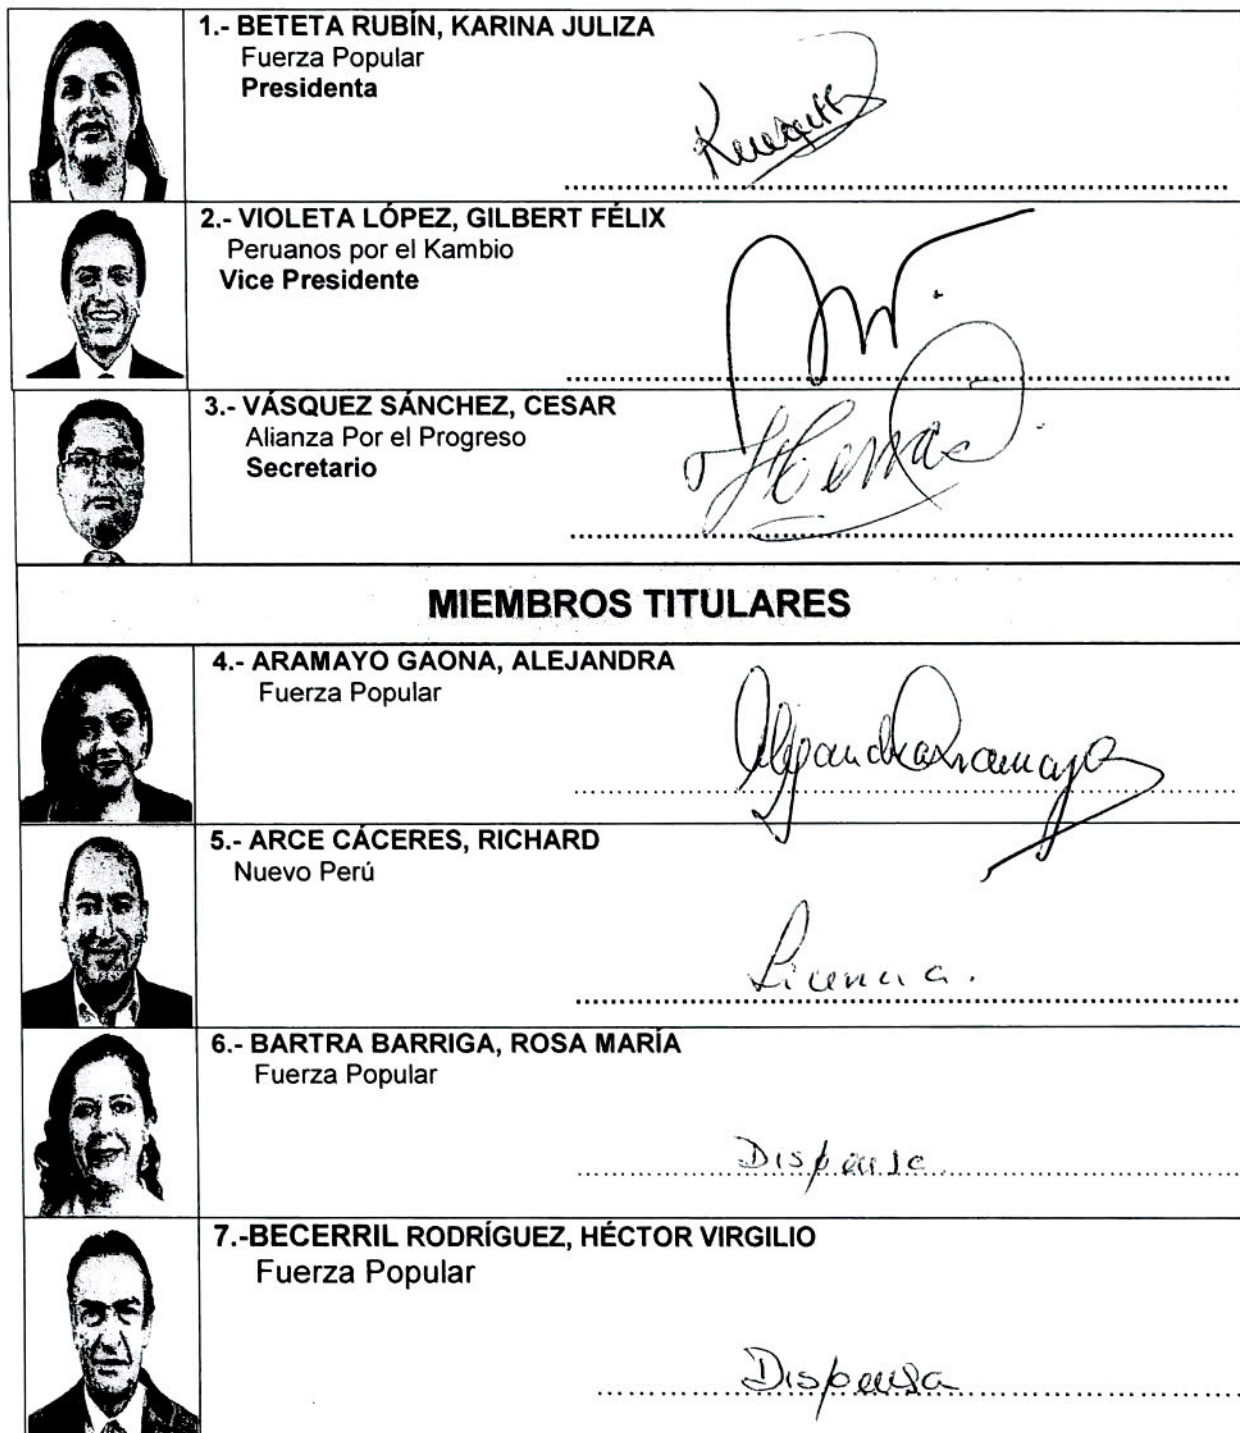 1.- BETETA RUBÍN, KARINA JULIZA
Fuerza Popular
Presidenta
2.- VIOLETA LÓPEZ, GILBERT FÉLIX
Peruanos por el Kambio
Vice Presidente
3.- VÁSQUEZ SÁNCHEZ, CESAR
Alianza Por el Progreso
Secretario
MIEMBROS TITULARES
4.- ARAMAYO GAONA, ALEJANDRA
Fuerza Popular
Alejandra Aramayo
5.- ARCE CÁCERES, RICHARD
Nuevo Perú
Licencia.
6.- BARTRA BARRIGA, ROSA MARÍA
Fuerza Popular
Dispensa
7.-BECERRIL RODRÍGUEZ, HÉCTOR VIRGILIO
Fuerza Popular
Dispensa